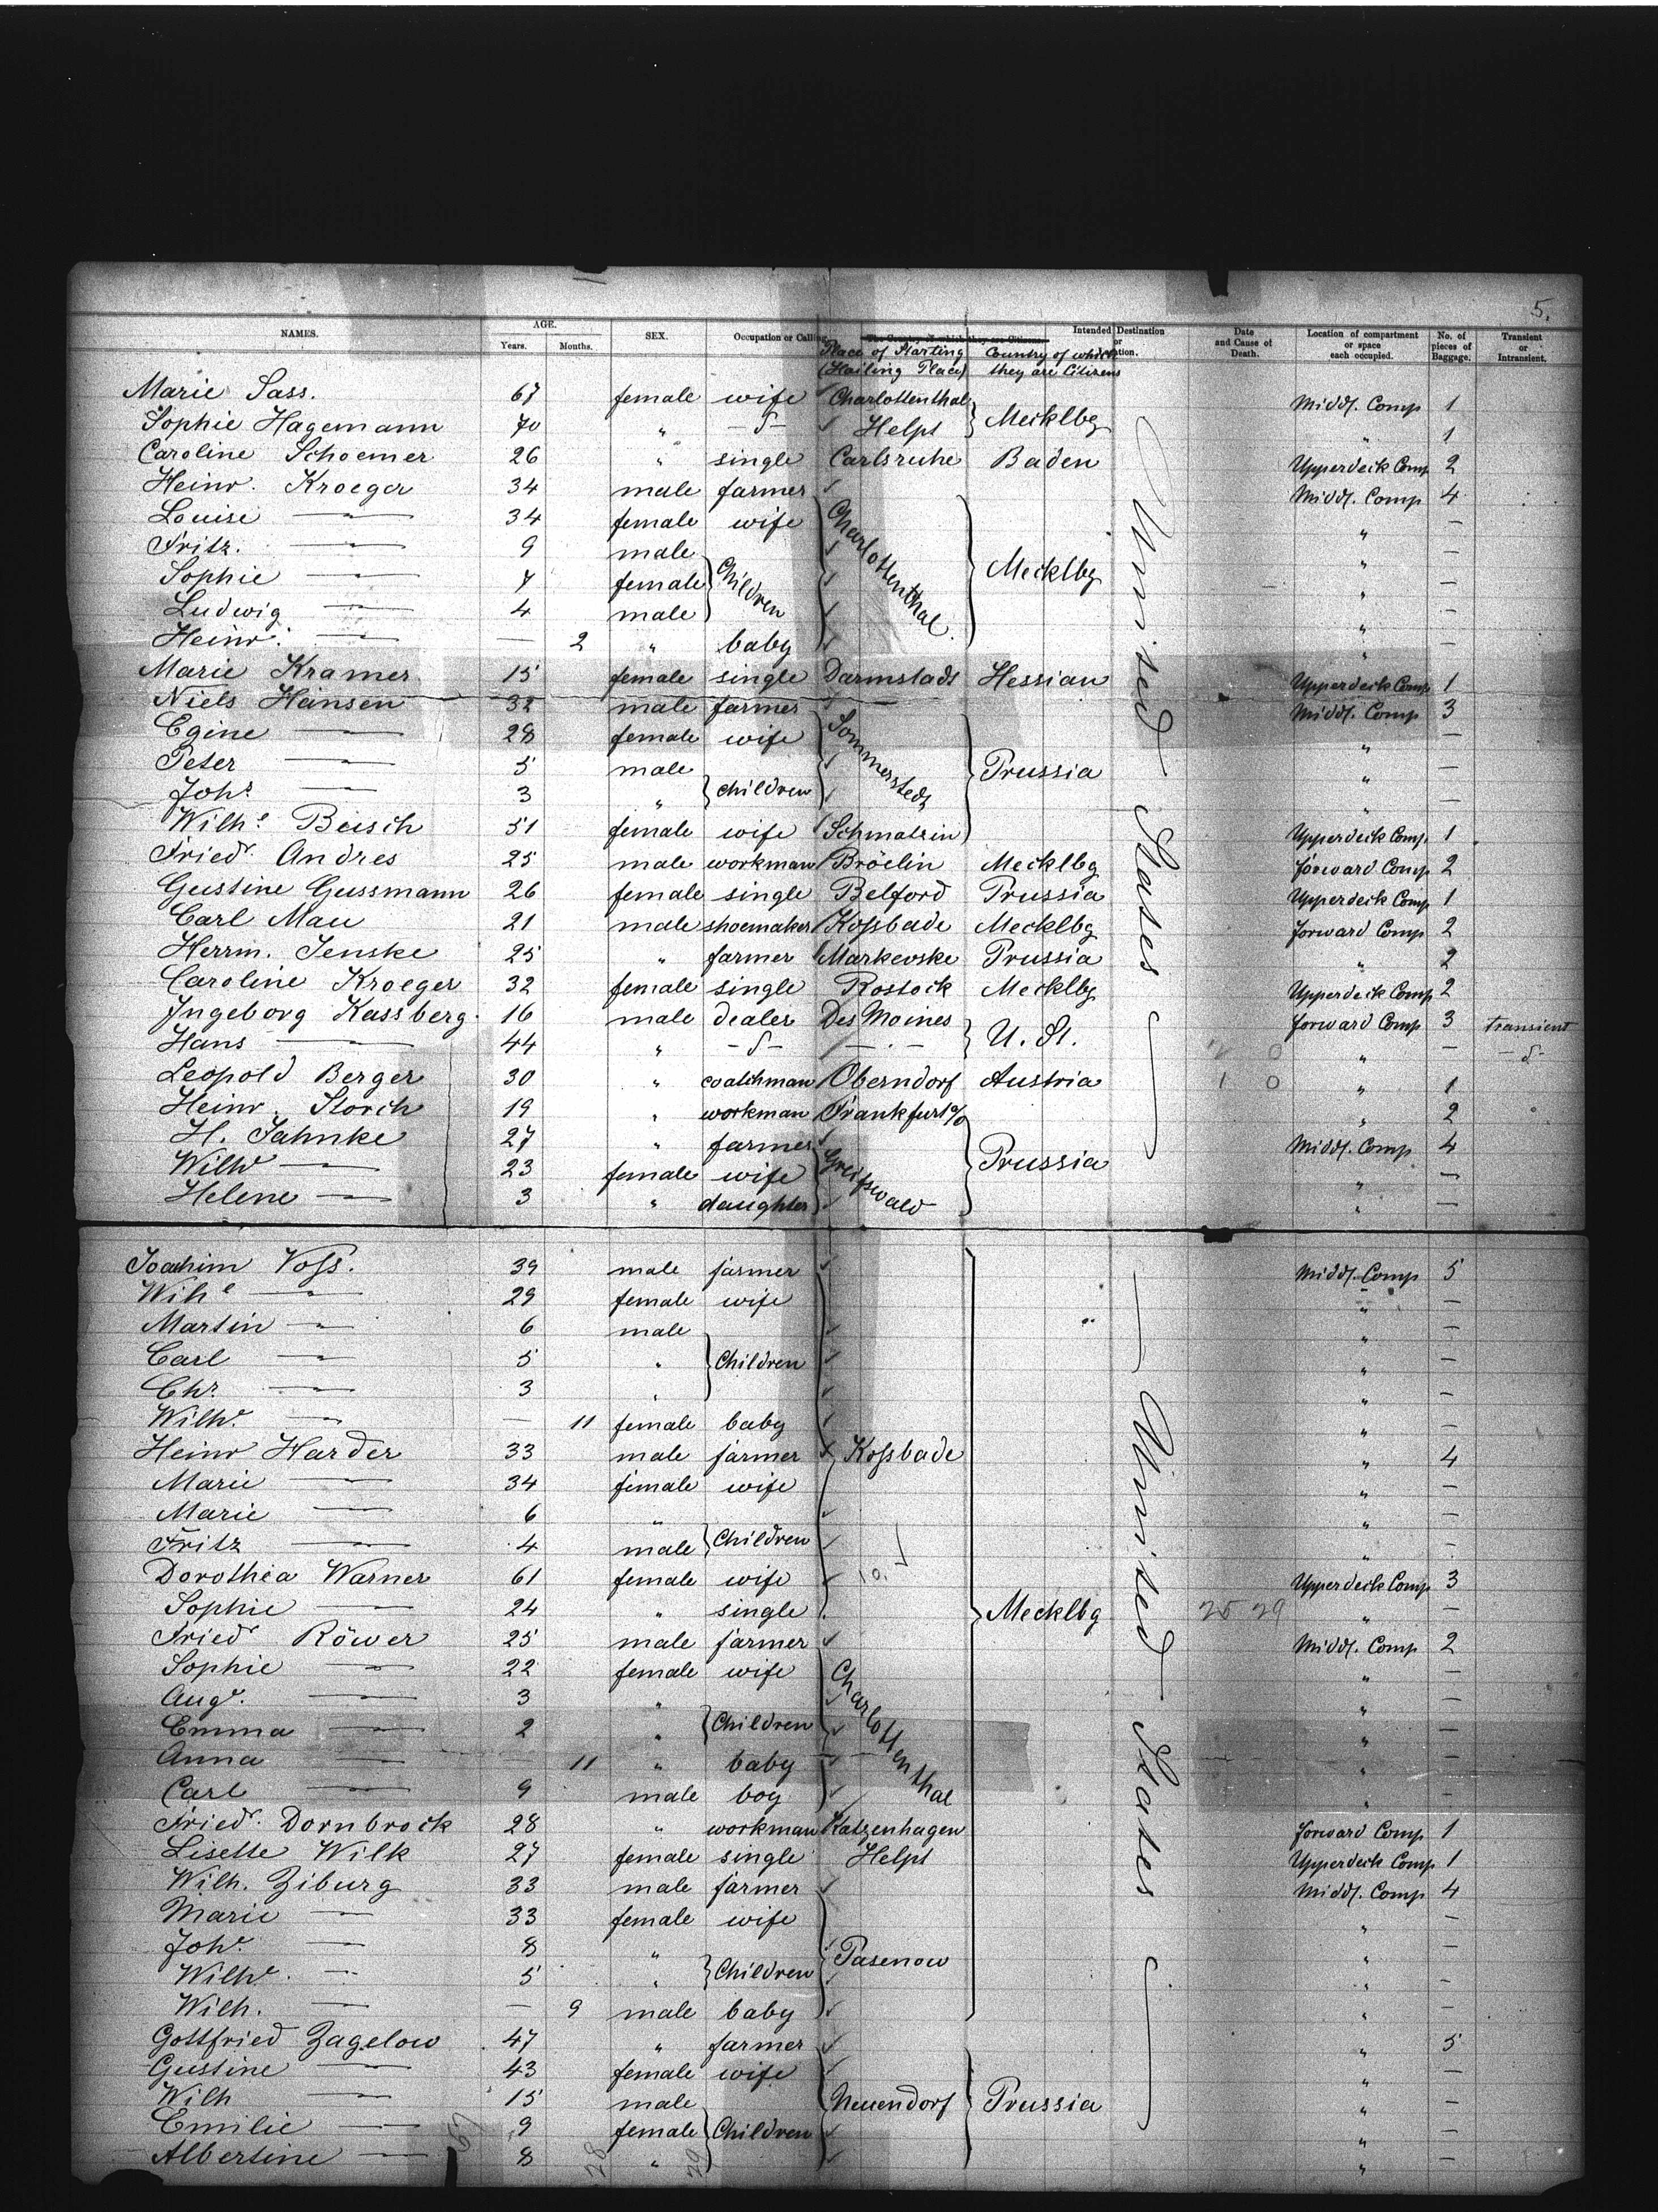 5.
NAMES. AGE. SEX. Occupation or Calling. The Country of which they are Citizens. Intended Destination or Location. Date and Cause of Death. Location of compartment or space each occupied. No. of pieces of Baggage. Transient or Intransient.
Years. Months. Place of Starting (Hailing Place) Country of which they are Citizens
Marie Sass. 67 female wife Charlottenthal Mecklbg Middl. Comp 1
Sophie Hagemann 70 " -d- Helpt " 1
Caroline Schoemer 26 " single Carlsruhe Baden Upperdeck Comp 2
Heinr. Kroeger 34 male farmer Charlottenthal Mecklbg Middl. Comp 4
Louise — 34 female wife " —
Fritz. — 9 male Children " —
Sophie — 7 female " —
Ludwig — 4 male " —
Heinr. — — 2 " baby " —
Marie Kramer 15 female single Darmstadt Hessian Upperdeck Comp 1
Niels Hansen 32 male farmer Sommerstedt Prussia Middl. Comp 3
Egine — 28 female wife " —
Peter — 5 male children " —
Johs. — 3 " " —
Wilhe Beisch 51 female wife Schmatzin Upperdeck Comp. 1
Friedr. Andres 25 male workman Bröelin Mecklbg forward Comp 2
Gustine Gussmann 26 female single Belford Prussia Upperdeck Comp 1
Carl Mau 21 male shoemaker Kossbade Mecklbg forward Comp 2
Herrm. Jenske 25 " farmer Markewske Prussia " 2
Caroline Kroeger 32 female single Rostock Mecklbg Upperdeck Comp 2
Ingeborg Kassberg. 16 male dealer Des Moines U. St. forward Comp 3 transient
Hans — 44 " -d- — " — -d-
Leopold Berger 30 " coatchman Oberndorf Austria " 1
Heinr. Storch 19 " workman Frankfurt a/o Prussia " 2
H. Jahnke 27 " farmer Greifswald Middl. Comp 4
Wilhe — 23 female wife " —
Helene — 3 " daughter " —
United States
Joachim Voss. 39 male farmer Middl. Comp 5
Wilhe — 29 female wife " —
Martin — 6 male Children " —
Carl — 5 " " —
Chr. — 3 " " —
Wilhe. — — 11 female baby " —
Heinr Harder 33 male farmer Kossbade " 4
Marie — 34 female wife " —
Marie — 6 " Children " —
Fritz — 4 male " —
Dorothea Warner 61 female wife Upperdeck Comp 3
Sophie — 24 " single Mecklbg 25 29 " —
Friedr Röwer 25 male farmer Charlottenthal Middl. Comp 2
Sophie — 22 female wife " —
Auge. — 3 " Children " —
Emma — 2 " " —
Anna — — 11 " baby " —
Carl — 9 male boy " —
Friedr. Dornbrock 28 " workman Katzenhagen forward Comp 1
Lisette Wilk 27 female single Helpt Upperdeck Comp 1
Wilh. Ziburg 33 male farmer Pasenow Middl. Comp 4
Marie — 33 female wife " —
Johe. — 8 " Children " —
Wilhe. — 5 " " —
Wilh. — — 9 male baby " —
Gottfried Zagelow 47 " farmer Neuendorf Prussia " 5
Gustine — 43 female wife " —
Wilh — 15 male Children " —
Emilie — 9 female " —
Albertine — 8 " "
United States